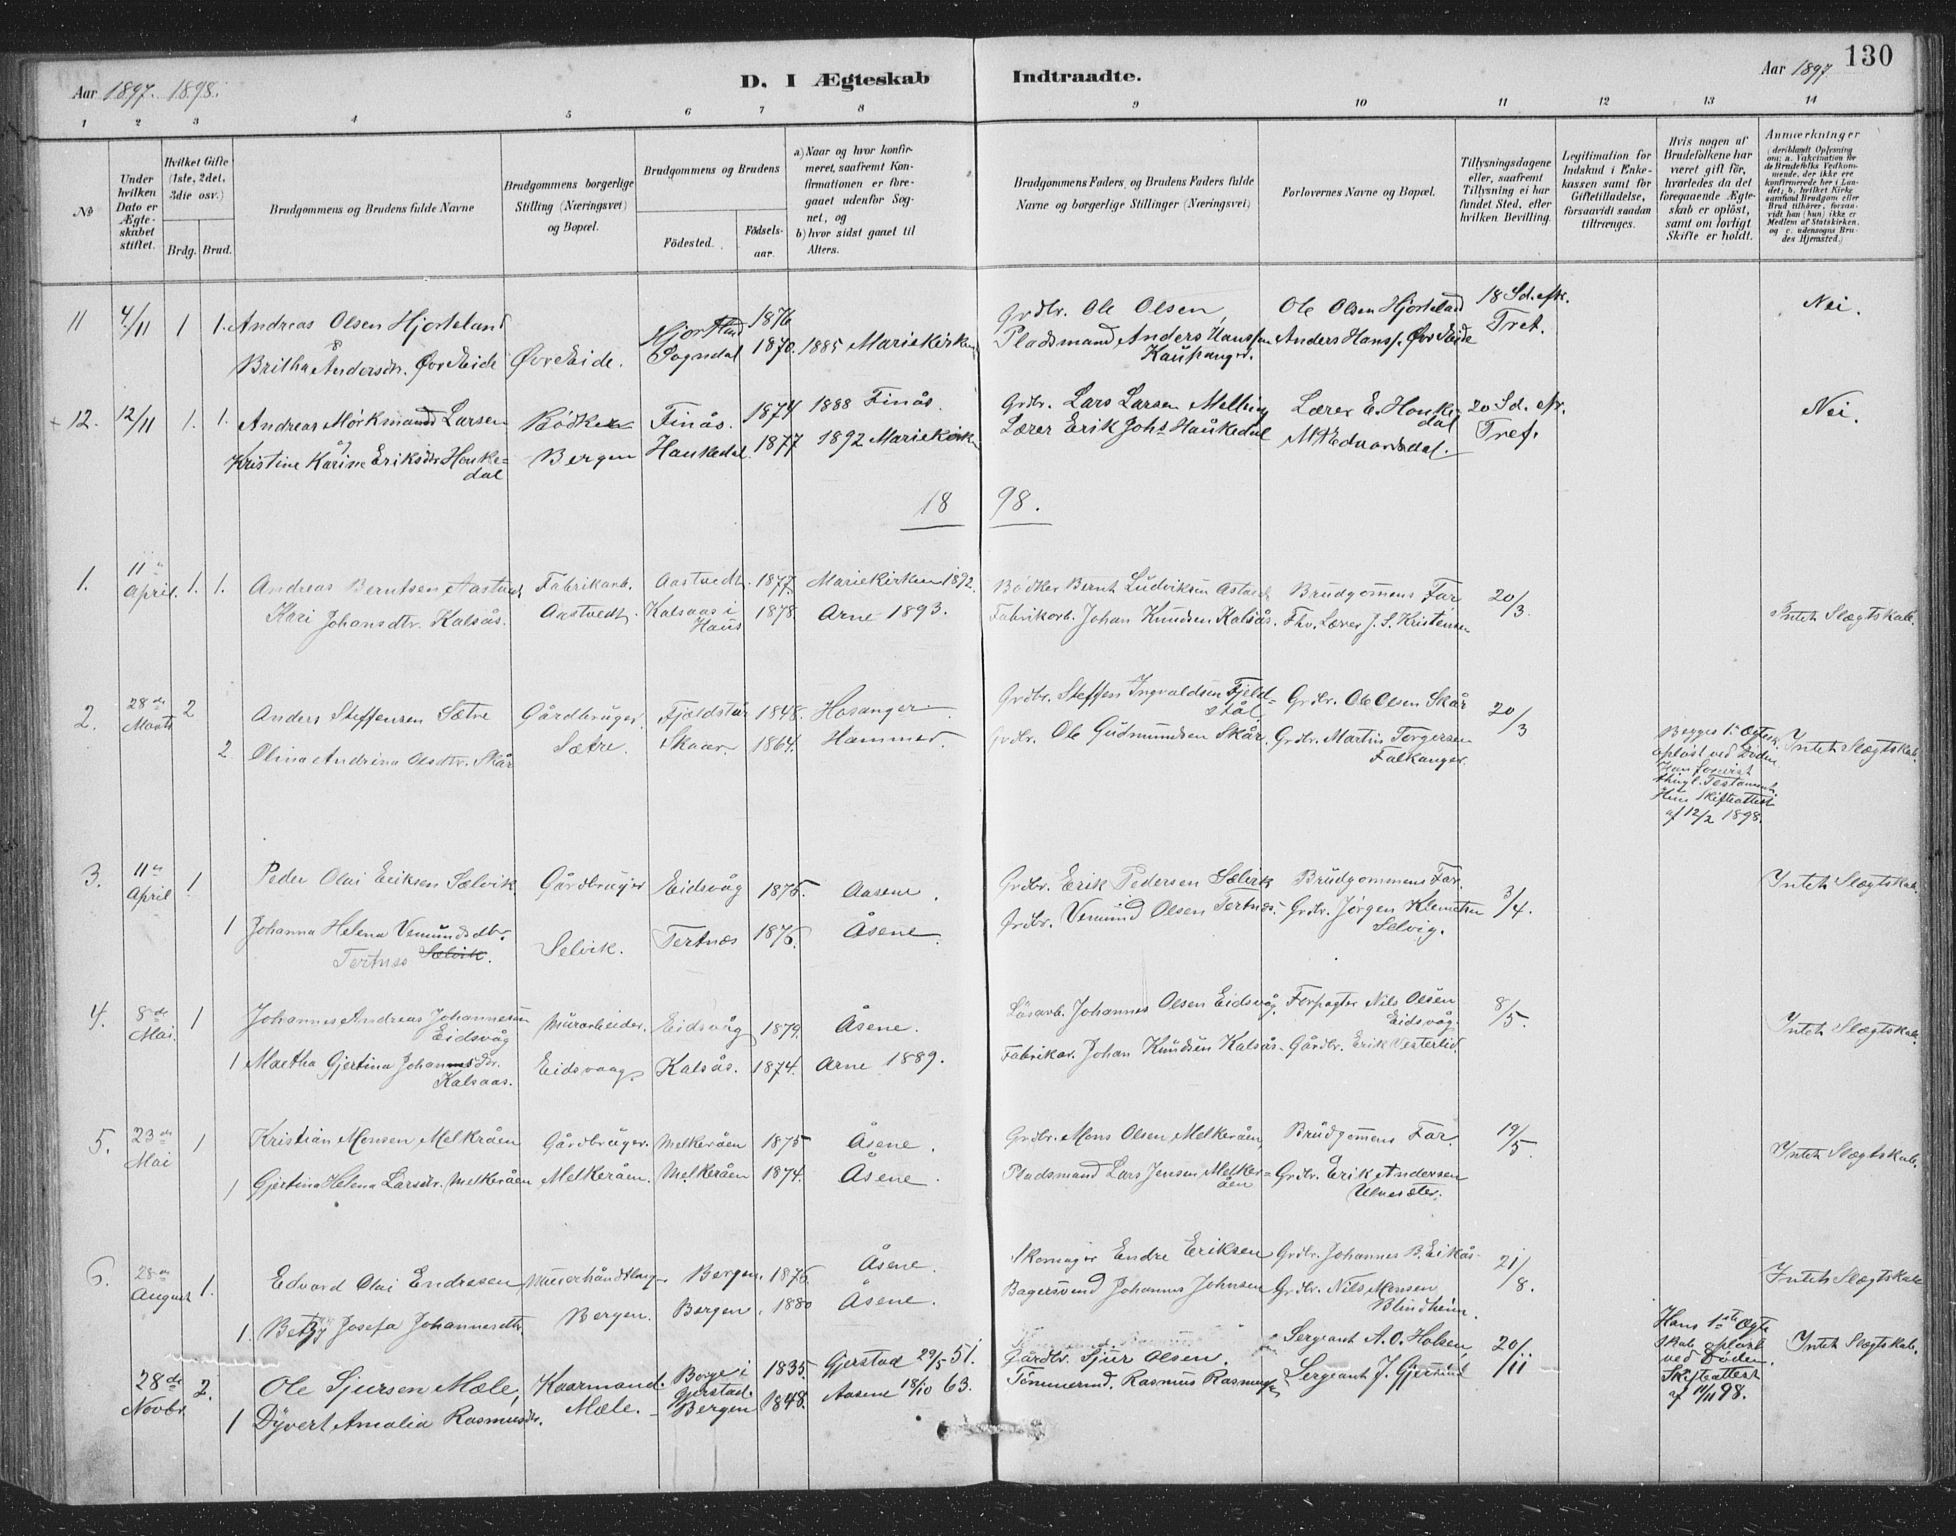 Aar 1897. 1898.
D. I Ægteskab Indtraadte.
Aar 1897
130
1 2 3 4 5 6 7 8 9 10 11 12 13 14
No
Under hvilken Dato er Ægteskabet stiftet.
Hvilket Gifte (1ste, 2det, 3die osv.)
Brdg. Brud.
Brudgommens og Brudens fulde Navne
Brudgommens borgerlige Stilling (Næringsvei) og Bopæl.
Brudgommens og Brudens
Fødested. Fødselsaar.
a) Naar og hvor konfirmeret, saafremt Konfirmationen er foregaaet udenfor Sognet, og
b) hvor sidst gaaet til Alters.
Brudgommens Faders og Brudens Faders fulde Navne og borgerlige Stillinger (Næringsvei)
Forlovernes Navne og Bopæl.
Tillysningsdagene eller, saafremt Tillysning ei har fundet Sted, efter hvilken Bevilling.
Legitimation for Indskud i Enkekassen samt for Giftetilladelse, forsaavidt saadan tiltrænges.
Hvis nogen af Brudefolkene har været gift før, hvorledes da det foregaaende Ægteskab er opløst, samt om lovligt Skifte er holdt.
Anmærkninger
(deriblandt Oplysning om: a. Vakcination for de Brudefolks Vedkommende, der ikke ere konfirmerede her i Landet; b. hvilket Kirkesamfund Brudgom eller Brud tilhører, forsaavidt han (hun) ikke er Medlem af Statskirken, og c. udensogns Brudes Hjemsted.)
11 4/11 1 1. Andreas Olsen Hjorteland Hjortland 1876 Grdbr. Ole Olsen, Ole Olsen Hjorteland 18 Sd. efr. Tref. Nei.
& Britha Andersdtr. Øvre Eide Øvre Eide. Sogndal 1870. 1885 Mariekirken Pladsmand Anders Hanssen Kaupanger. Anders Hans. Øvre Eide
12. 12/11 1. 1. Andreas Mørkmand Larsen Bødker Finås. 1874 1888 Finås. Grdbr. Lars Larsen Melling Lærer E. Haukedal 20 Sd. efr. Tref. Nei.
og Kristine Karine Eriksdtr Haukedal Bergen Haukedal. 1877 1892 Mariekirken Lærer Erik Johs Haukedal M. Edvardsdal.
18 98.
1. 11te April. 1. 1. Andreas Berntsen Aastvedt Fabrikarb. Aastvedt. 1877. Mariekirken 1892. Bødker Bernt Ludviksen Astvedt Brudgomens Far 20/3 Intet Slægtskab.
Kari Johansdtr. Kalsås. Aastvedt. Kalsaas i Haus 1878. Arne 1893. Fabrikarb. Johan Knudsen Kalsås. Fhv. Lærer J. S. Kristensen
2. 28de Marts 2 Anders Steffensen Sætre Gårdbruger. Fjeldstål 1848. Hosanger. Grdbr. Steffen Ingvaldsen Fjeldstål Grdbr. Ole Olsen Skår 20/3
2 Olina Andrina Olsdtr. Skår Sætre. Skaar 1864. Hammer. Grdbr. Ole Gudmundsen Skår. Grdbr. Martin Torgersen Falkanger.
Begges 1ste Ægtesk. opløst ved Døden. Han thingl. Testament. Hun Skifteattest af 12/2 1898. Intet Slægtskab.
3. 11te April 1 Peder Olai Eriksen Sælvik Gårdbruger Eidsvåg 1875. Aasene. Grdbr. Erik Pedersen Sælvik Brudgommens Far. 3/4. Intet Slægtskab.
1 Johanna Helena Vemundsdtr. Tertnes Sælvik. Selvik. Tertnæs 1876. Åsene. Grdbr. Vemund Olsen Tertnæs. Grdbr. Jørgen Klemetsen Selvig.
4. 8de Mai. 1 Johannes Andreas Johannesen Eidsvåg Murarbeider. Eidsvåg 1879. Åsene. Løsarb. Johannes Olsen Eidsvåg. Forpagter Nils Olsen Eidsvåg. 8/5. Intet Slægtskab.
1 Maetha Gjertina Johannesdtr. Kalsaas. Eidsvaag Kalsås. 1874. Arne 1889. Fabrikar. Johan Knudsen Kalsås. Gårdbr. Erik Vesterlid.
5. 23de Mai 1 Kristian Monsen Melkråen Gårdbruger. Melkeråen 1875 Åsene. Grdbr. Mons Olsen Melkeråen, Brudgomens Far. 19/5. Intet Slægtskab.
1 Gjertina Helena Larsdtr. Melkeråen Melkeråen. Melkeråen 1874. Åsene. Pladsmand Lars Jensen Melkeråen Grdbr. Erik Andersen Ulvesæter.
6. 28de August 1. Edvard Olai Endresen Murerhåndtlanger. Bergen. 1876. Åsene. Skomager Endre Eriksen Grdbr. Johannes B. Eikås. 21/8. Intet Slægtskab
1. Betzy Josefa Johannesdtr. Bergen. Bergen. 1880 Åsene. Bagersvend Johannes Johnsen Grdbr. Nils Monsen Blindheim.
28de Novbr. 2. Ole Sjursen Mæle, Kaarmand. Borge i Gjerstad. 1835. Gjerstad 29/5 51. Gårdbr. Sjur Olsen. Sergeant A. O. Holsen 20/11
1 Dyvert Amalia Rasmusdtr. Mæle. Bergen 1848. Aasene 18/10 63. Tømmermd. Rasmus Rasmussen Sergeant J. Gjermund
Hans 1ste Ægteskab opløst ved Døden. Skifteattest af 11/11 98. Intet Slægtskab.